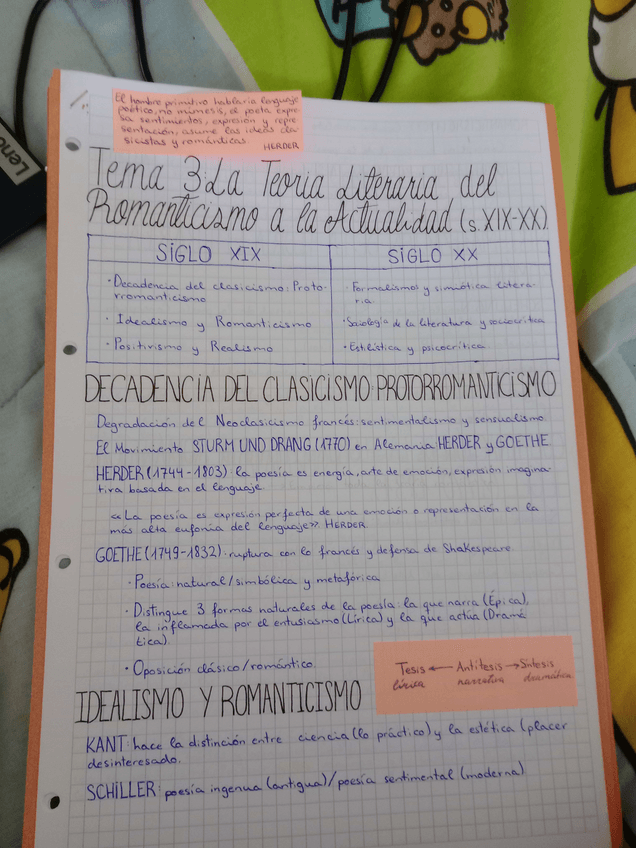 El hombre primitivo hablaría lenguaje
poético, no mímesis, el poeta expre-
sa sentimientos, expresión y repre-
sentación, asume las ideas cla-
sicistas y románticas.
HERDER
Leno
Tema 3: La Teoría Literaria del
Romanticismo a la Actualidad (s. XIX-XX).
SIGLO XIX
· Decadencia del clasicismo: Proto-
rromanticismo
· Idealismo y Romanticismo
· Positivismo y Realismo
SIGLO XX
· Formalismos y simiótica litera-
ria.
· Sociología de la literatura y sociocrítica
· Estilística y psicocrítica
DECADENCIA DEL CLASICISMO: PROTORROMANTICISMO
Degradación del Neoclasicismo francés: sentimentalismo y sensualismo.
El Movimiento STURM UND DRANG (1770) en Alemania: HERDER y GOETHE
HERDER (1744-1803): la poesía es energía, arte de emoción, expresión imagina-
tiva basada en el lenguaje.
«La poesía es expresión perfecta de una emoción o representación en la
más alta eufonía del lenguaje». HERDER.
GOETHE (1749-1832): ruptura con lo francés y defensa de Shakespeare.
· Poesía: natural/simbólica y metafórica
· Distingue 3 formas naturales de la poesía: la que narra (Épica),
la inflamada por el entusiasmo (Lírica) y la que actúa (Dramá-
tica).
· Oposición clásico/romántico.
Tesis ← Antítesis → Síntesis
lírica narrativa dramática
IDEALISMO Y ROMANTICISMO
KANT: hace la distinción entre ciencia (lo práctico) y la estética (placer
desinteresado.
SCHILLER: poesía ingenua (antigua)/poesía sentimental (moderna)